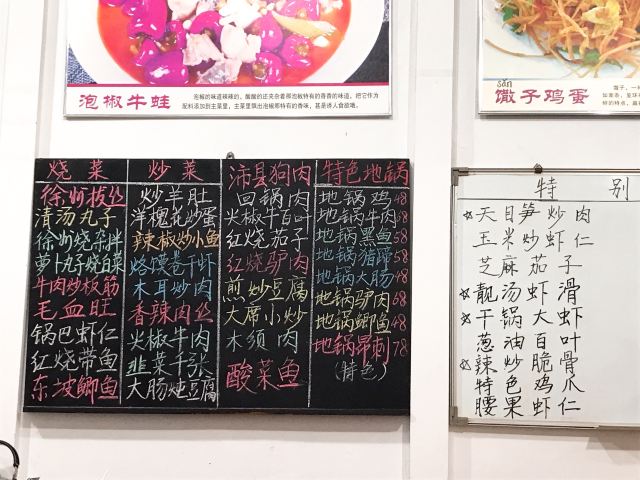 泡椒牛蛙
sǎn
馓子鸡蛋
烧菜
徐州拔丝
清汤丸子
徐州烧杂拌
萝卜丸子烧白菜
牛肉炒板筋
毛血旺
锅巴虾仁
红烧带鱼
东坡鲫鱼
炒菜
炒羊肚
洋槐花炒蛋
辣椒炒小鱼
烙馍卷干虾
木耳炒肉
香辣肉丝
火椒牛肉
韭菜千张
大肠炖豆腐
沛县狗肉
回锅肉
火椒牛百叶
红烧茄子
红烧驴肉
煎炒豆腐
大席小炒
木须肉
酸菜鱼
特色地锅
地锅鸡48
地锅牛肉68
地锅黑鱼58
地锅猪蹄58
地锅大肠48
地锅驴肉68
地锅鲫鱼48
地锅昂刺78
(特色)
特别
☆天目笋炒肉
玉米炒虾仁
芝麻茄子
☆靓汤虾滑
☆干锅大虾
葱油百叶
☆辣炒脆骨
特色鸡爪
腰果虾仁